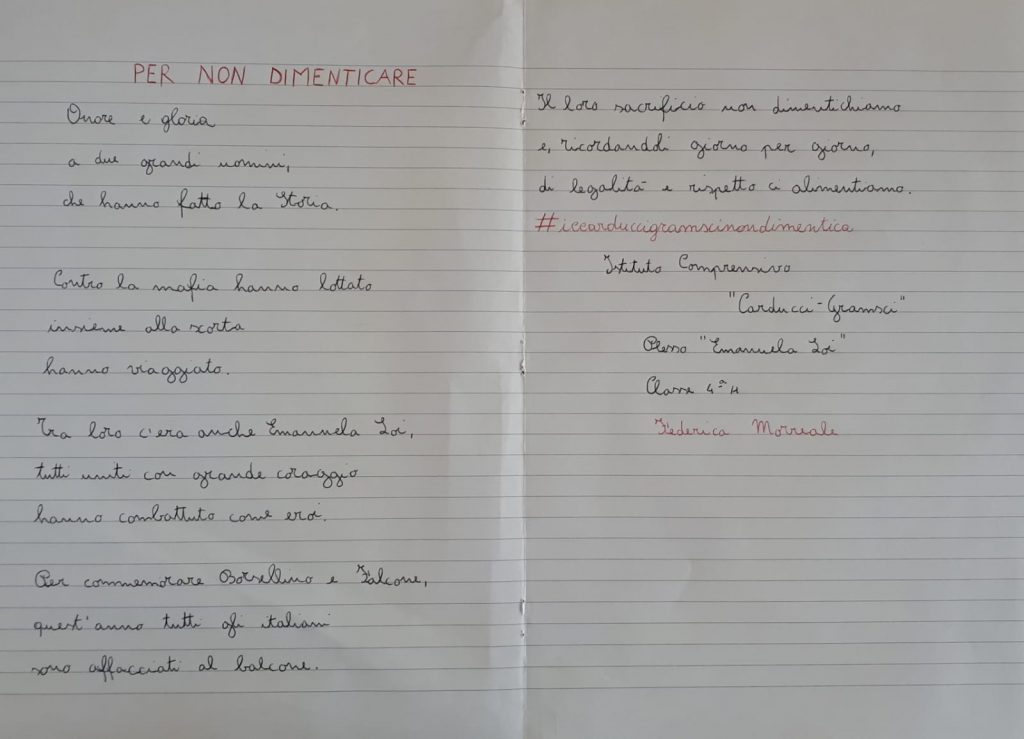 PER NON DIMENTICARE
Onore e gloria
a due grandi uomini,
che hanno fatto la Storia.
Contro la mafia hanno lottato
insieme alla scorta
hanno viaggiato.
Tra loro c'era anche Emanuela Loi,
tutti uniti con grande coraggio
hanno combattuto come eroi.
Per commemorare Borsellino e Falcone,
quest'anno tutti gli italiani
sono affacciati al balcone.
Il loro sacrificio non dimentichiamo
e, ricordandoli giorno per giorno,
di legalità e rispetto ci alimentiamo.
#iccarduccigramscinondimentica
Istituto Comprensivo
"Carducci-Gramsci"
Plesso "Emanuela Loi"
Classe 4ª H
Federica Morreale